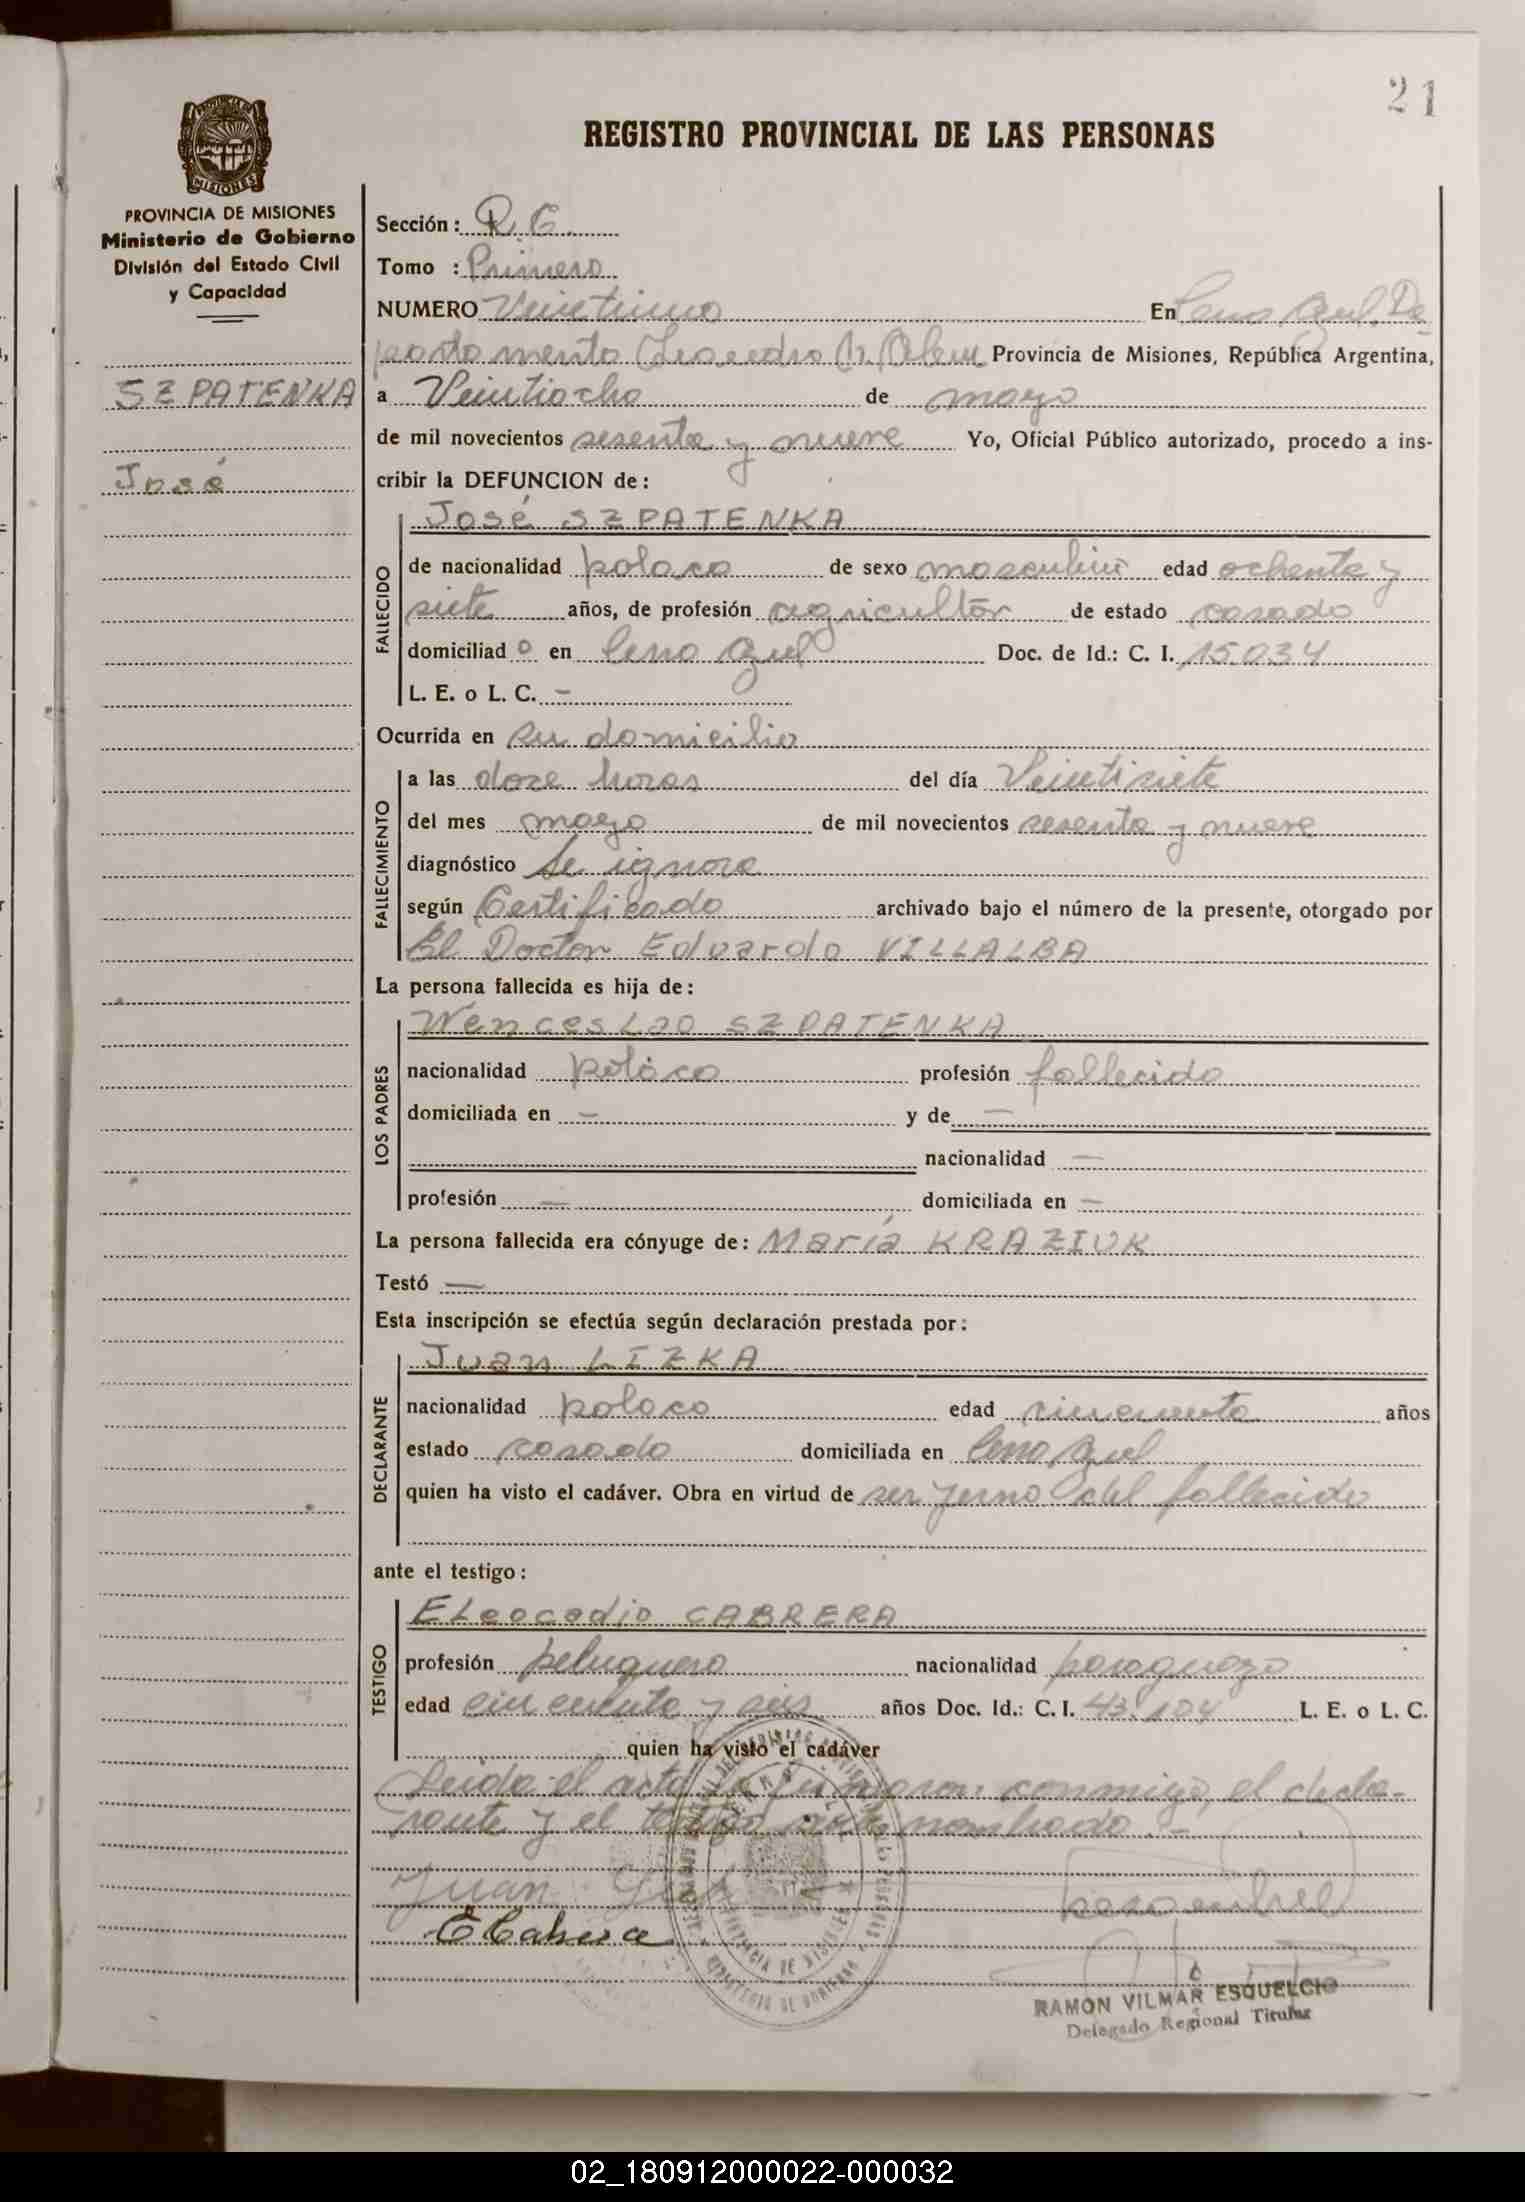 21
REGISTRO PROVINCIAL DE LAS PERSONAS
PROVINCIA DE MISIONES
Ministerio de Gobierno
División del Estado Civil
y Capacidad
SZPATENKA
José
Sección: R. G.
Tomo : Primero
NUMERO Veintiuno En Cerro Azul. De-
partamento Leandro N. Alem Provincia de Misiones, República Argentina,
a Veintiocho de mayo
de mil novecientos sesenta y nueve Yo, Oficial Público autorizado, procedo a ins-
cribir la DEFUNCION de:
FALLECIDO
José SZPATENKA
de nacionalidad polaca de sexo masculino edad ochenta y
siete años, de profesión agricultor de estado casado
domiciliad o en Cerro Azul Doc. de Id.: C. I. 15.034
L. E. o L. C. —
Ocurrida en su domicilio
FALLECIMIENTO
a las doze horas del día Veintisiete
del mes mayo de mil novecientos sesenta y nueve
diagnóstico Se ignora
según Certificado archivado bajo el número de la presente, otorgado por
El Doctor Eduardo VILLALBA
La persona fallecida es hija de:
LOS PADRES
Wenceslao SZPATENKA
nacionalidad polaco profesión fallecido
domiciliada en — y de —
nacionalidad —
profesión — domiciliada en —
La persona fallecida era cónyuge de: María KRAZIUK
Testó —
Esta inscripción se efectúa según declaración prestada por:
DECLARANTE
Juan LIZKA
nacionalidad polaco edad cincuenta años
estado casado domiciliada en Cerro Azul
quien ha visto el cadáver. Obra en virtud de ser yerno del fallecido
ante el testigo:
TESTIGO
ELeocadio CABRERA
profesión peluquero nacionalidad paraguayo
edad cincuenta y seis años Doc. Id.: C. I. 43.104 L. E. o L. C.
quien ha visto el cadáver
Leida el acta la firmaron conmigo, el decla-
rante y el testigo nombrado.-
Juan
E Cabrera
RAMON VILMAR ESQUELCIO
Delegado Regional Titular
02_180912000022-000032